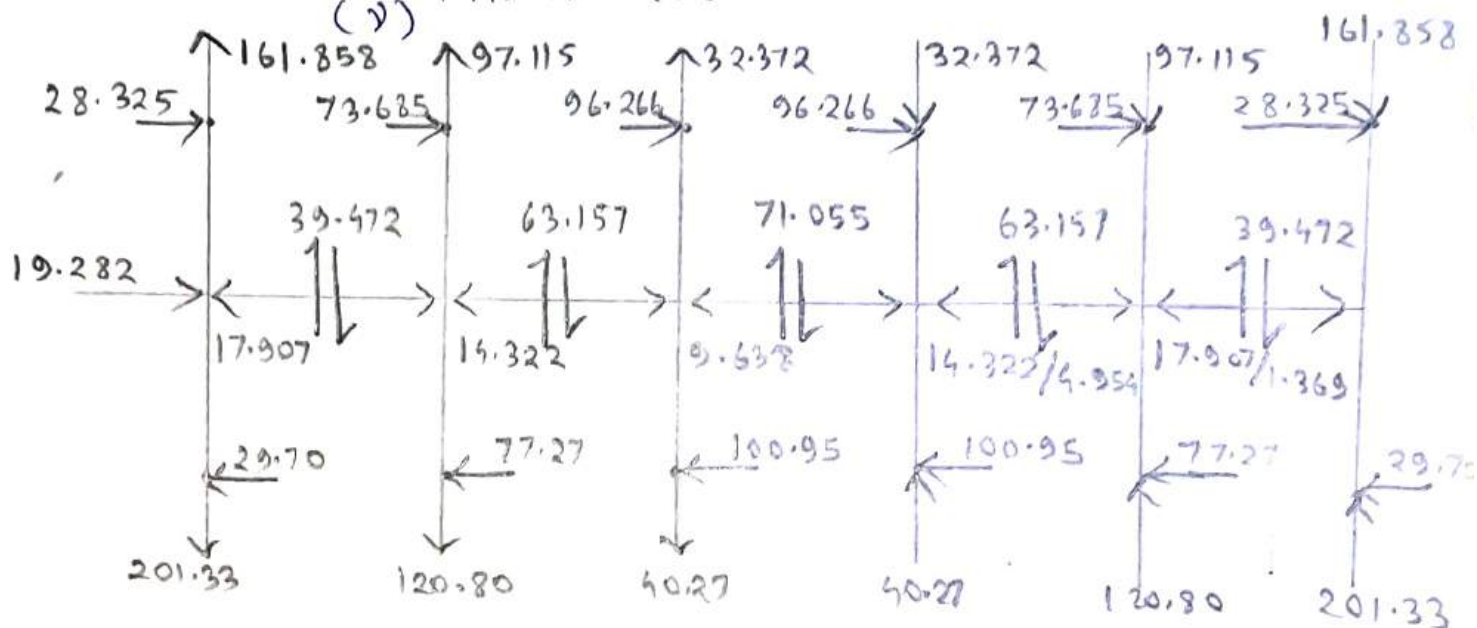 (ν)
161.858 97.115 32.372 32.372 97.115 161.858
28.325 73.685 96.266 96.266 73.685 28.325
39.472 63.157 71.055 63.157 39.472
19.282
17.907 14.322 9.638 14.322/4.954 17.907/1.369
29.70 77.27 100.95 100.95 77.27 29.70
201.33 120.80 40.27 40.27 120.80 201.33